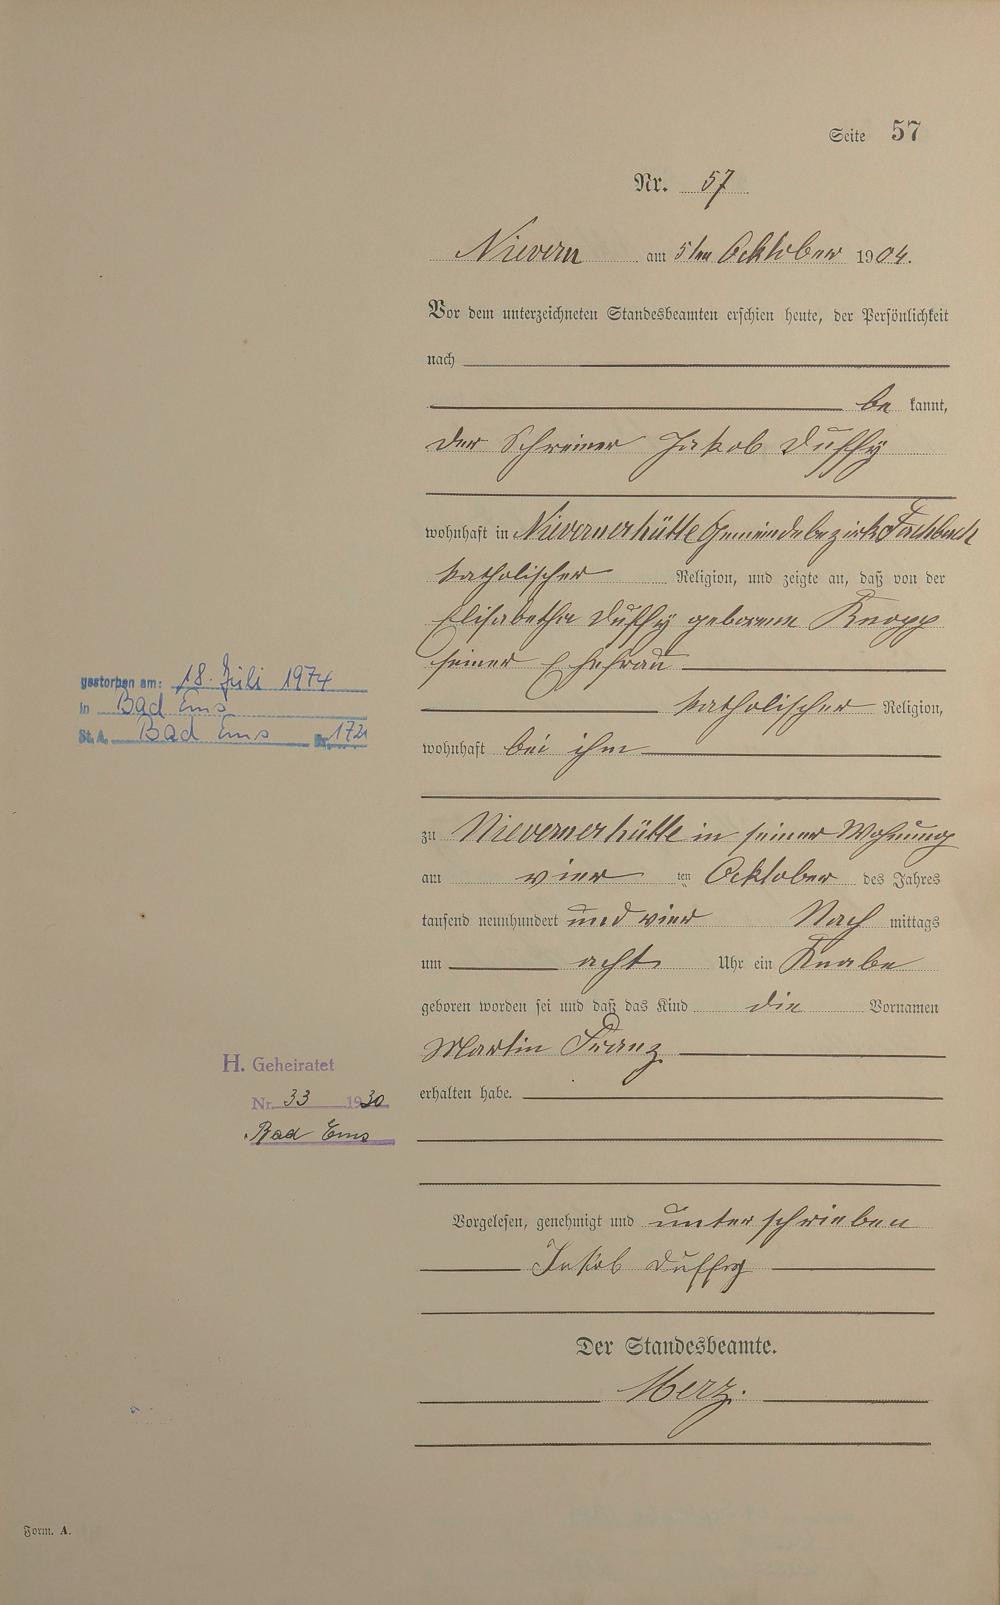 Seite 57
Nr. 57
Nievern am 5ten Ocktober 1904.
Vor dem unterzeichneten Standesbeamten erschien heute, der Persönlichkeit
nach
be kannt,
der Schreiner Jakob Duffy
wohnhaft in Nievernerhütte Gemeindebezirk Fachbach
katholischer Religion, und zeigte an, daß von der
Elisabetha Duffy geborene Knopp
seiner Ehefrau
katholischer Religion,
wohnhaft bei ihm
zu Nievernerhütte in seiner Wohnung
am vier ten Ocktober des Jahres
tausend neunhundert und vier Nach mittags
um acht Uhr ein Knabe
geboren worden sei und daß das Kind die Vornamen
Martin Franz
erhalten habe.
Vorgelesen, genehmigt und unterschrieben
Jakob Duffy
Der Standesbeamte.
Merz.
gestorben am: 18. Juli 1974
in Bad Ems
St. A. Bad Ems Nr. 172
H. Geheiratet
Nr. 33 1930
Bad Ems
Form. A.